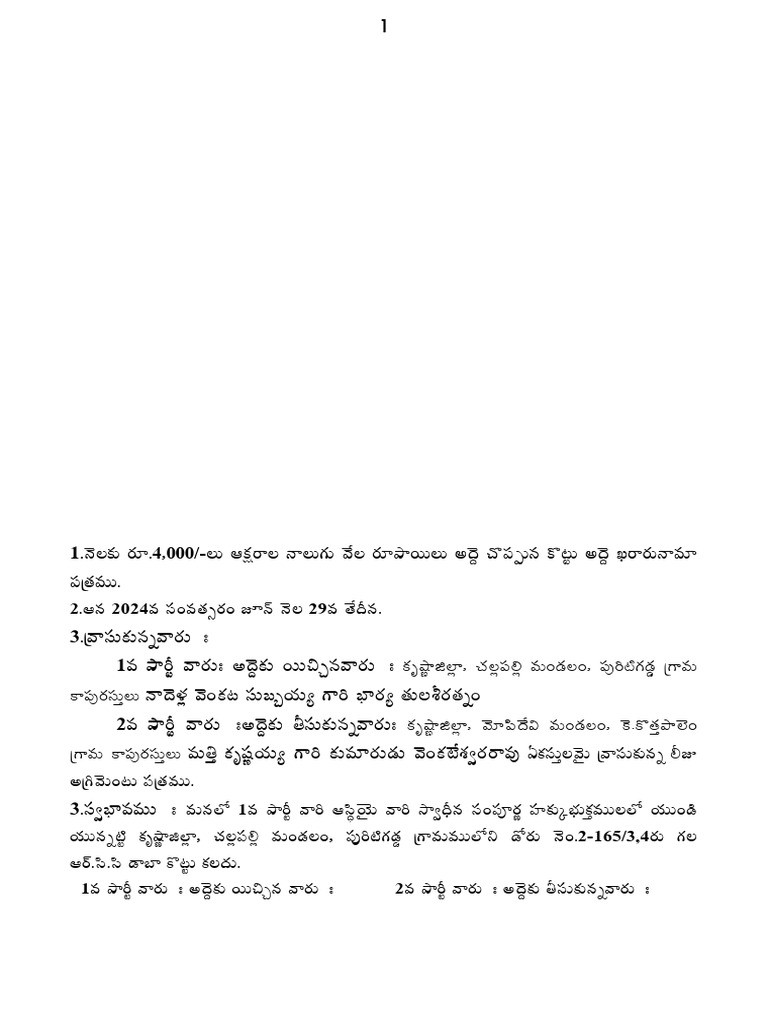 1
1.నెలకు రూ.4,000/-లు ఆక్షరాల నాలుగు వేల రూపాయిలు అద్దె చొప్పున కొట్టు అద్దె ఖరారునామా
పత్రము.
2.ఆన 2024వ సంవత్సరం జూన్ నెల 29వ తేదీన.
3.వ్రాసుకున్నవారు ః
1వ పార్టీ వారుః అద్దెకు యిచ్చినవారు ః కృష్ణాజిల్లా, చల్లపల్లి మండలం, పురిటిగడ్డ గ్రామ
కాపురస్తులు నాదెళ్ల వెంకట సుబ్బయ్య గారి భార్య తులశీరత్నం
2వ పార్టీ వారు ఃఅద్దెకు తీసుకున్నవారుః కృష్ణాజిల్లా, మోపిదేవి మండలం, కె.కొత్తపాలెం
గ్రామ కాపురస్తులు మత్తి కృష్ణయ్య గారి కుమారుడు వెంకటేశ్వరరావు ఏకస్తులమై వ్రాసుకున్న లీజు
అగ్రిమెంటు పత్రము.
3.స్వభావము ః మనలో 1వ పార్టీ వారి ఆస్థియై వారి స్వాధీన సంపూర్ణ హక్కుభుక్తములలో యుండి
యున్నట్టి కృష్ణాజిల్లా, చల్లపల్లి మండలం, పురిటిగడ్డ గ్రామములోని డోరు నెం.2-165/3,4రు గల
ఆర్.సి.సి డాబా కొట్టు కలదు.
1వ పార్టీ వారు ః అద్దెకు యిచ్చిన వారు ః 2వ పార్టీ వారు ః అద్దెకు తీసుకున్నవారు ః